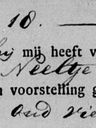 18.
mij heeft v
Neeltje
n voorstelling g
oud vie